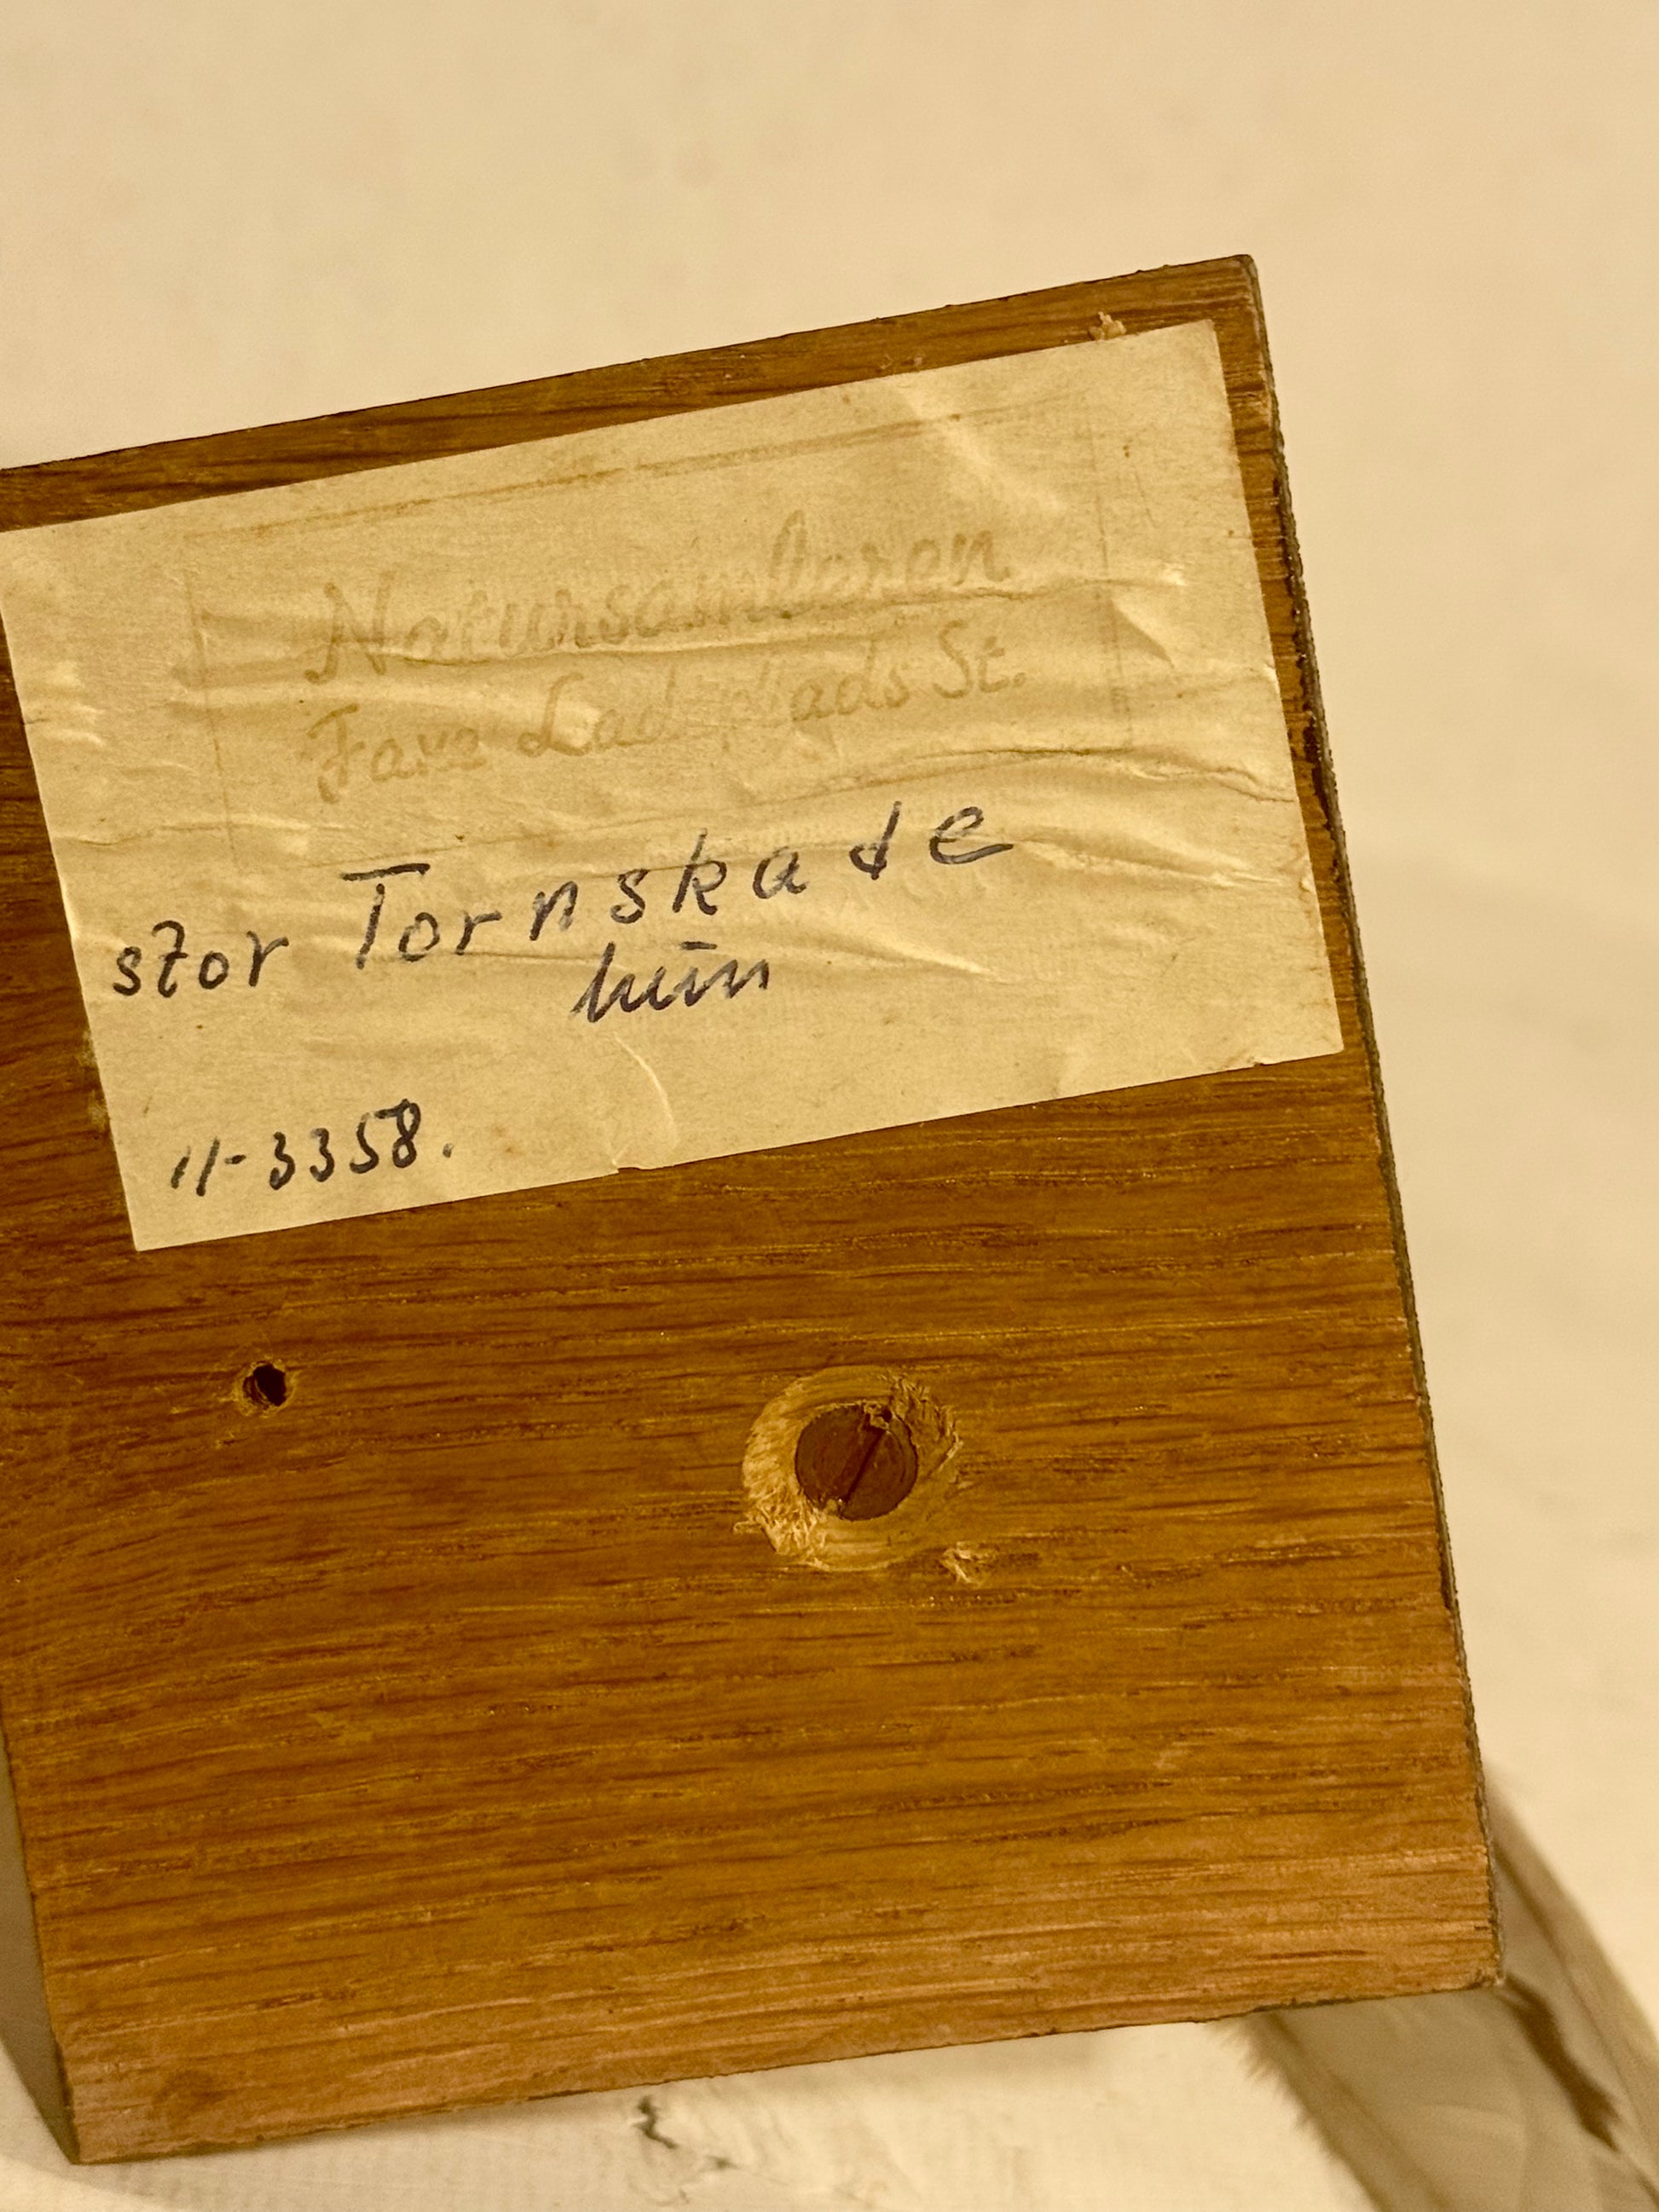 Natursamleren
Farve Ladeplads St.
stor Tornskade
hun
11-3358.